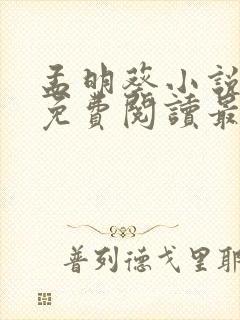 孟明葵小說
免費閱讀最
普列德戈里耶